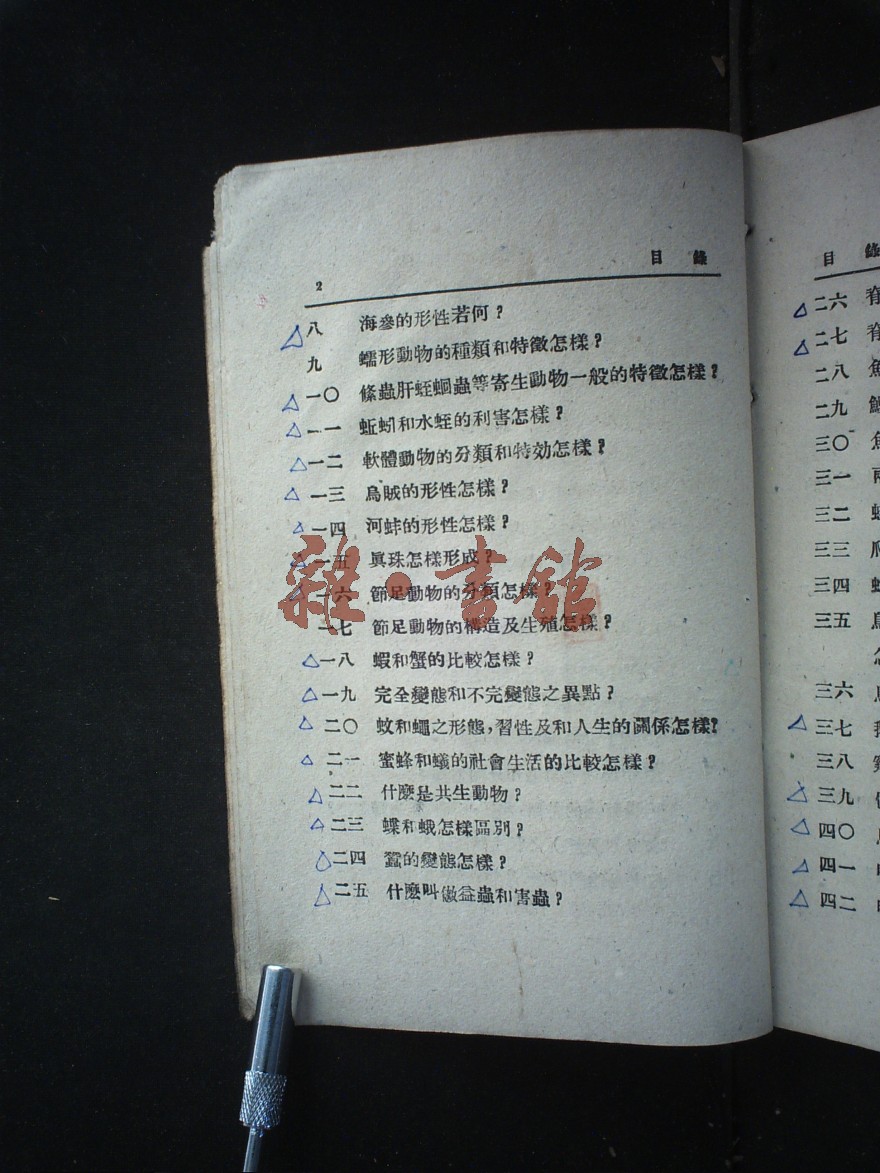 2 目錄
八 海參的形性若何?
九 蠕形動物的種類和特徵怎樣?
一〇 絛蟲肝蛭蛔蟲等寄生動物一般的特徵怎樣?
一一 蚯蚓和水蛭的利害怎樣?
一二 軟體動物的分類和特効怎樣?
一三 烏賊的形性怎樣?
一四 河蚌的形性怎樣?
一五 眞珠怎樣形成?
一六 節足動物的分類怎樣?
一七 節足動物的構造及生殖怎樣?
一八 蝦和蟹的比較怎樣?
一九 完全變態和不完變態之異點?
二〇 蚊和蠅之形態,習性及和人生的關係怎樣?
二一 蜜蜂和蟻的社會生活的比較怎樣?
二二 什麽是共生動物?
二三 蝶和蛾怎樣區別?
二四 蠶的變態怎樣?
二五 什麽叫做益蟲和害蟲?
雜·書館
目錄
二六 脊
二七 脊
二八 魚
二九
三〇 魚
三一 兩
三二
三三 爬
三四
三五
怎
三六
三七
三八
三九
四〇
四一
四二